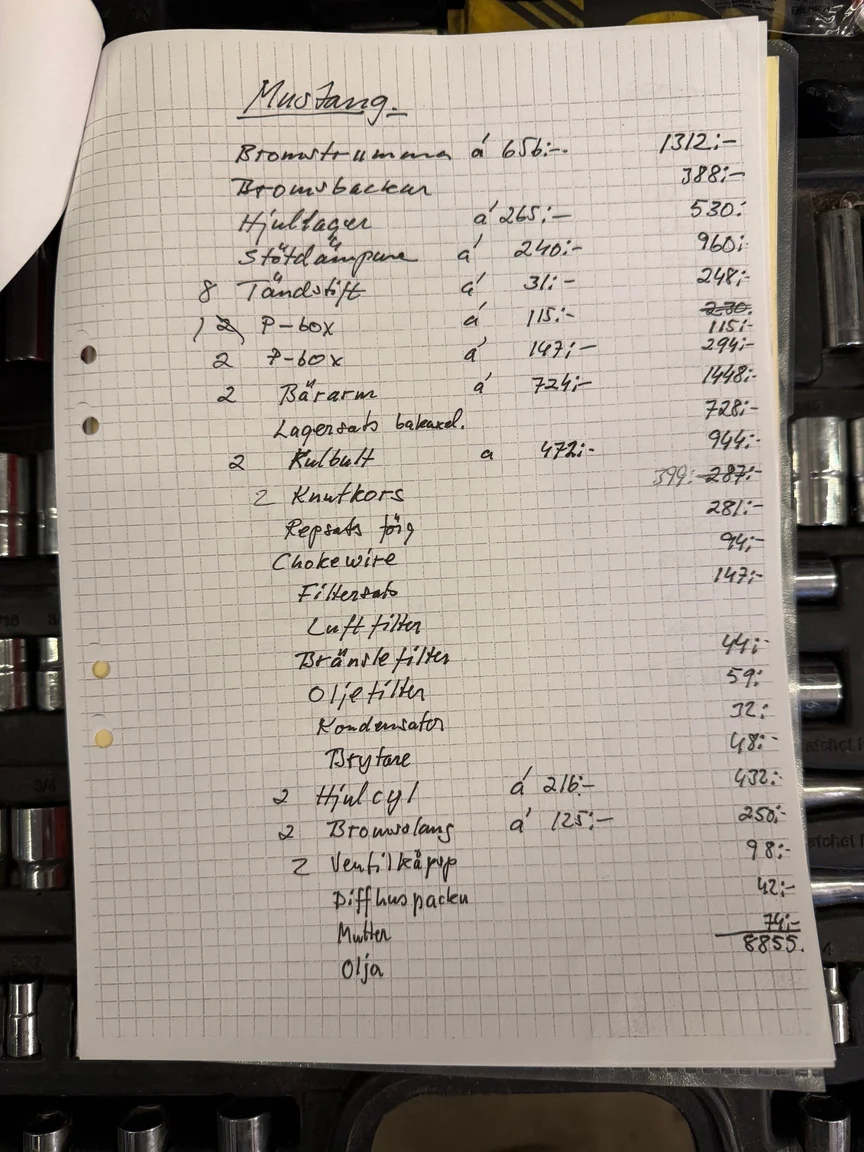 Mustang.
Bromstrumma á 656:- 1312:-
Bromsbackar 388:-
Hjullager á 265:- 530:
Stötdämpare á 240:- 960:
8 Tändstift á 31:- 248:-
1 2 P-box á 115:- 230: 115:-
2 P-box á 147:- 294:-
2 Bärarm á 724:- 1448:-
Lagersats bakaxel. 728:-
2 Kulbult a 472:- 944:-
2 Knutkors 399: 287:-
Repsats förg 281:-
Chokewire 94:-
Filtersats 147:-
Luftfilter
Bränslefilter 44:-
Oljefilter 59:
Kondensator 32:
Brytare 48:-
2 Hjulcyl á 216:- 432:-
2 Bromsslang á 125:- 250:-
2 Ventilkåpsp 98:-
Diffhuspackn 42:-
Mutter 74:-
Olja 8855.